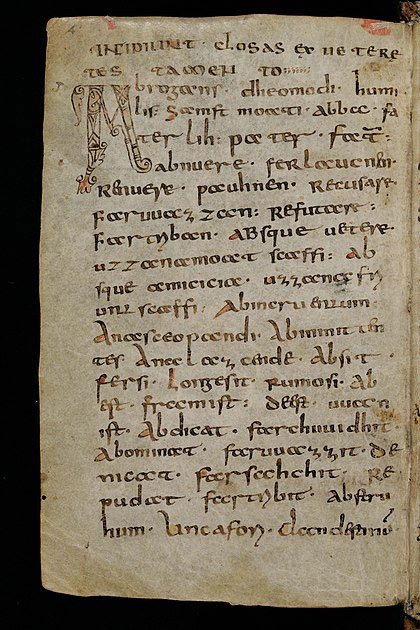 INCIPIUNT · closas ex uetere
tes tamen to
Abrogans · dheomodi · humi
lis · samft moati · abba · fa
ter lih : pater · fat̄
abnuere · ferlaucnen ·
renuere · pauhnen · recusare
faruuazzan : refutare :
fartriban · absque uetere ·
uzzana moat scaffi : ab
sque amicicia · uzzana fri
unt scaffi ·
anasceopandi · abminiun
tes · ane laz cende · absit ·
fersi · longe sit · rumo si · ab
est · fram ist : deest · uuan
ist · abdicat · farchuuidhit
abominat · faruuazzit · de
nicat · farsehchit · re
pudat · fartribit ·